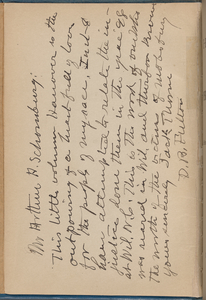 Mr Arthur A. Schomburg:
This little volume Hanover is the
outpouring of a heart full of love
for the people of my race. In it I
have attempted to relate the in-
justice done them in the year 98
at Wil, N.C. This is the work of one who
was reared in Wil, and therefore knows
the worth of the victims of mobbery
Yours sincerely Jack Thorne
D. B. Fulton